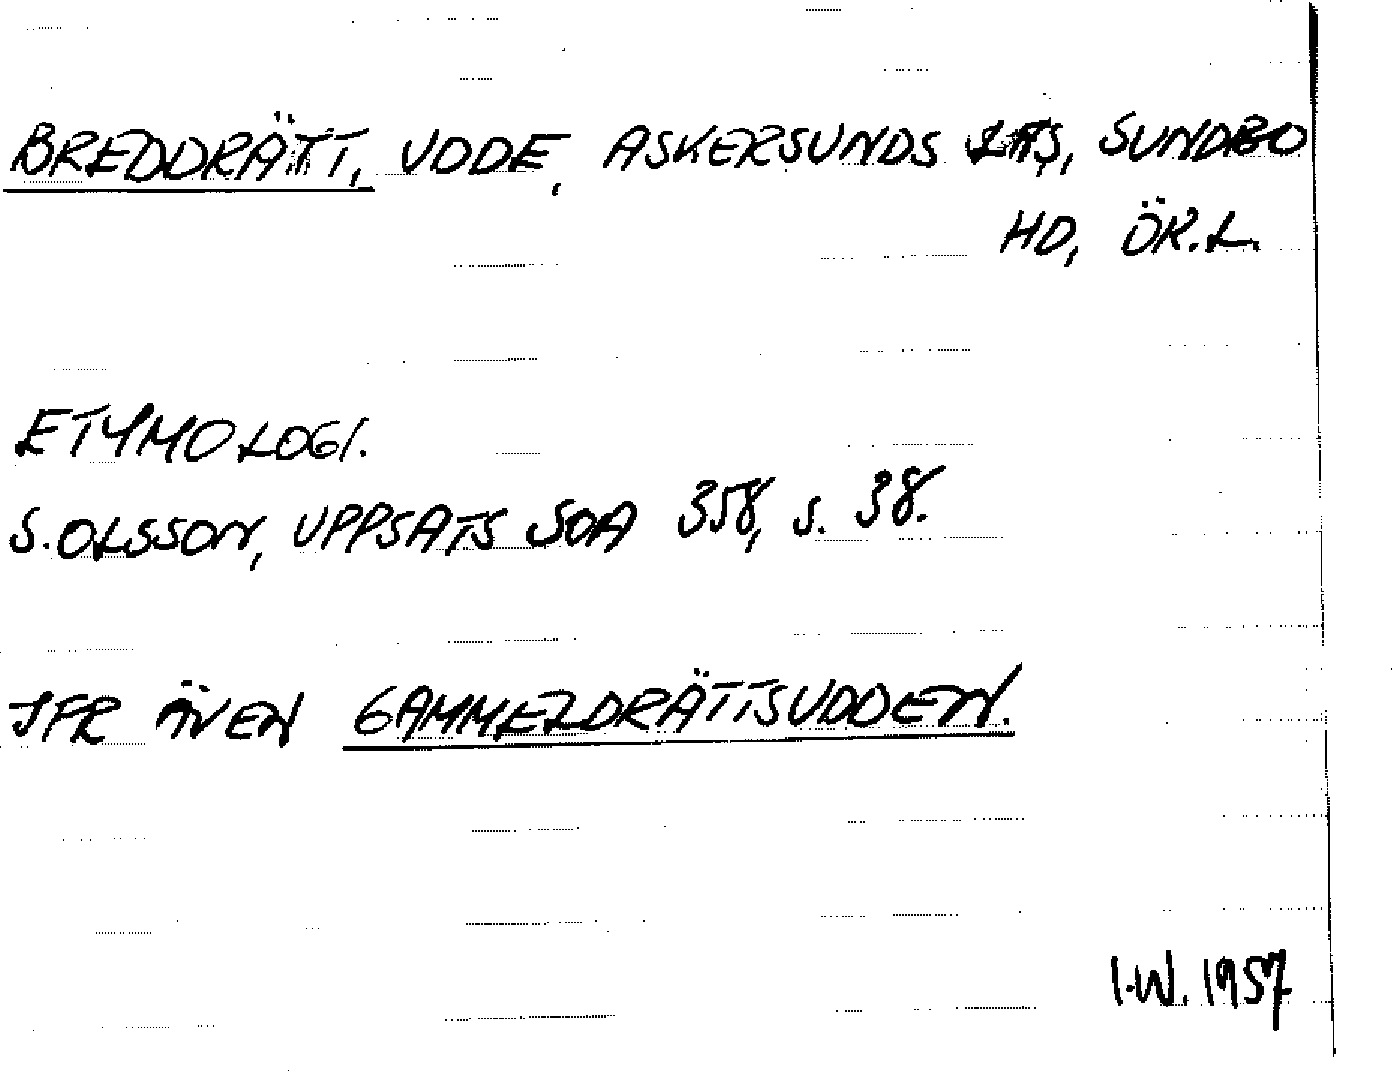 BREDDRÄTT, UDDE, ASKERSUNDS LFS, SUNDBO
HD, ÖR.L.
ETYMOLOGI.
S. OLSSON, UPPSATS SOA 358, S. 38.
JFR ÄVEN GAMMELDRÄTTSUDDEN.
I.W. 1957